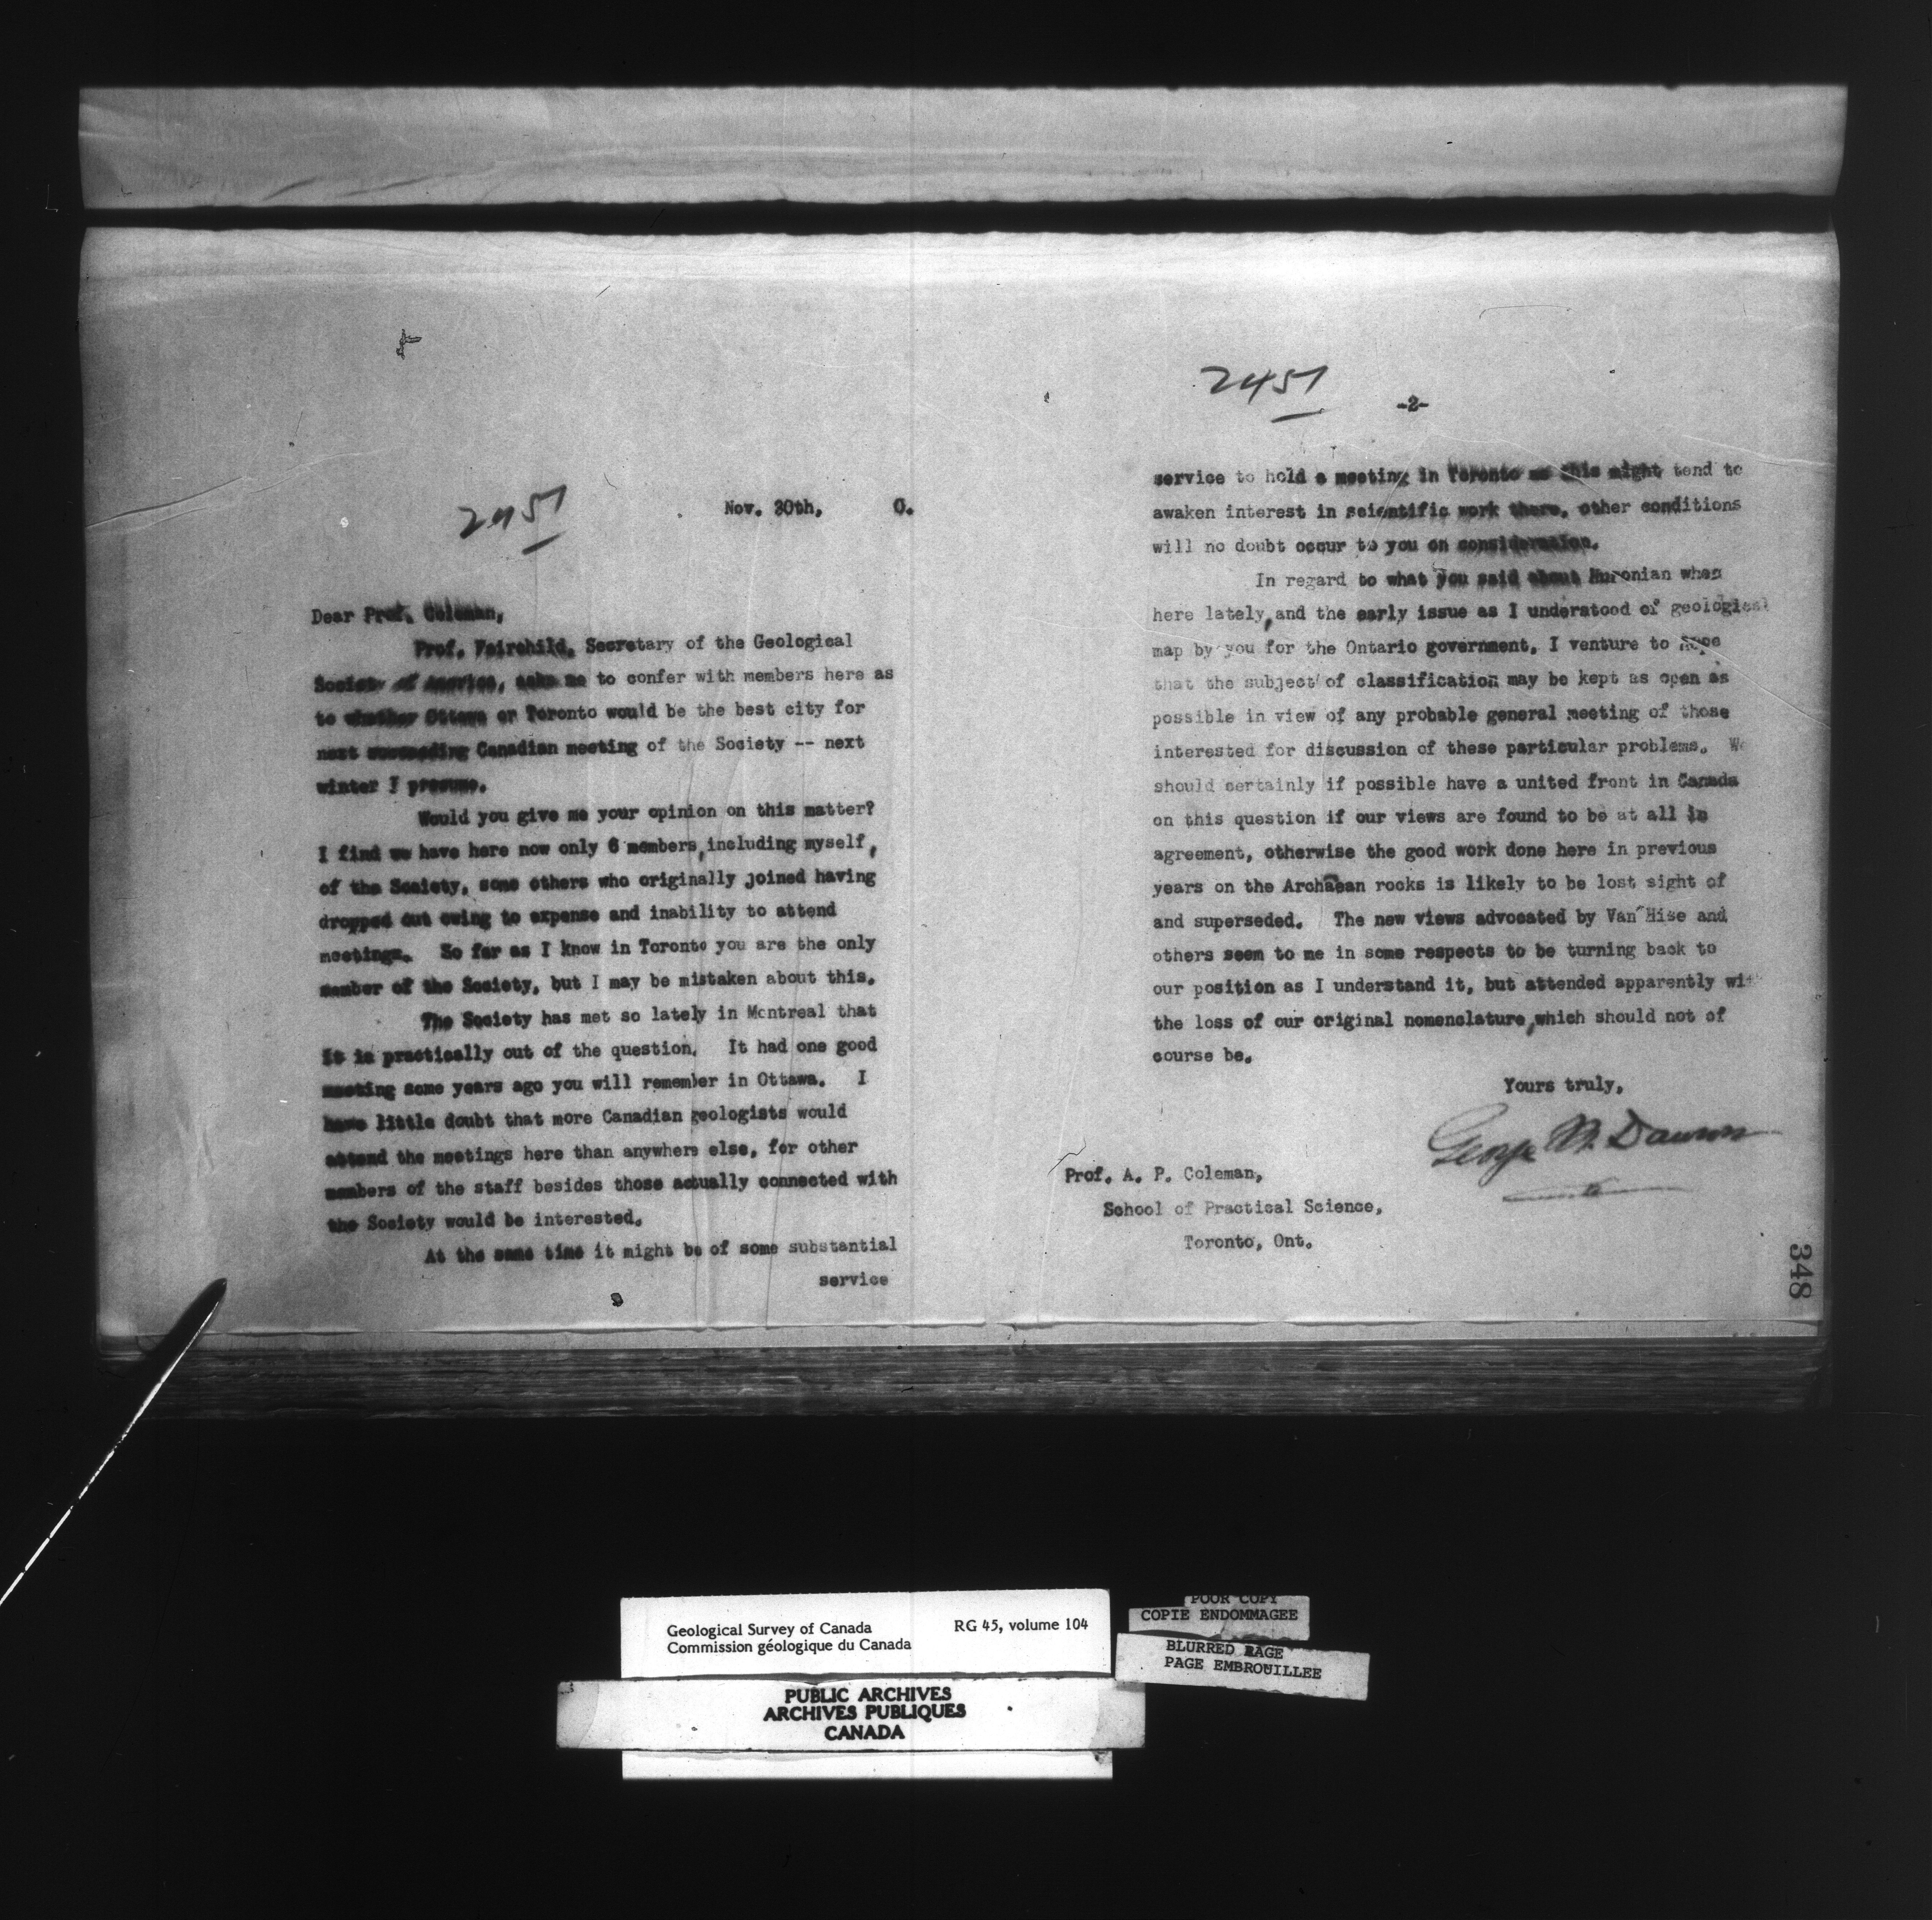 2451
Nov. 30th, 0.
Dear Prof. Coleman,
Prof. Fairchild, Secretary of the Geological
Society of America, asks me to confer with members here as
to whether Ottawa or Toronto would be the best city for
next succeeding Canadian meeting of the Society -- next
winter I presume.
Would you give me your opinion on this matter?
I find we have here now only 6 members, including myself,
of the Society, some others who originally joined having
dropped out owing to expense and inability to attend
meetings. So far as I know in Toronto you are the only
member of the Society, but I may be mistaken about this.
The Society has met so lately in Montreal that
it is practically out of the question. It had one good
meeting some years ago you will remember in Ottawa. I
have little doubt that more Canadian geologists would
attend the meetings here than anywhere else, for other
members of the staff besides those actually connected with
the Society would be interested.
At the same time it might be of some substantial
service
2451
-2-
service to hold a meeting in Toronto as this might tend to
awaken interest in scientific work there, other conditions
will no doubt occur to you on consideration.
In regard to what you said about Huronian when
here lately, and the early issue as I understood of geological
map by you for the Ontario government, I venture to hope
that the subject of classification may be kept as open as
possible in view of any probable general meeting of those
interested for discussion of these particular problems. We
should certainly if possible have a united front in Canada
on this question if our views are found to be at all in
agreement, otherwise the good work done here in previous
years on the Archaean rocks is likely to be lost sight of
and superseded. The new views advocated by Van Hise and
others seem to me in some respects to be turning back to
our position as I understand it, but attended apparently wi
the loss of our original nomenclature, which should not of
course be.
Yours truly,
George M. Dawson
Prof. A. P. Coleman,
School of Practical Science,
Toronto, Ont.
348
Geological Survey of Canada RG 45, volume 104
Commission géologique du Canada
PUBLIC ARCHIVES
ARCHIVES PUBLIQUES
CANADA
POOR COPY
COPIE ENDOMMAGEE
BLURRED PAGE
PAGE EMBROUILLEE